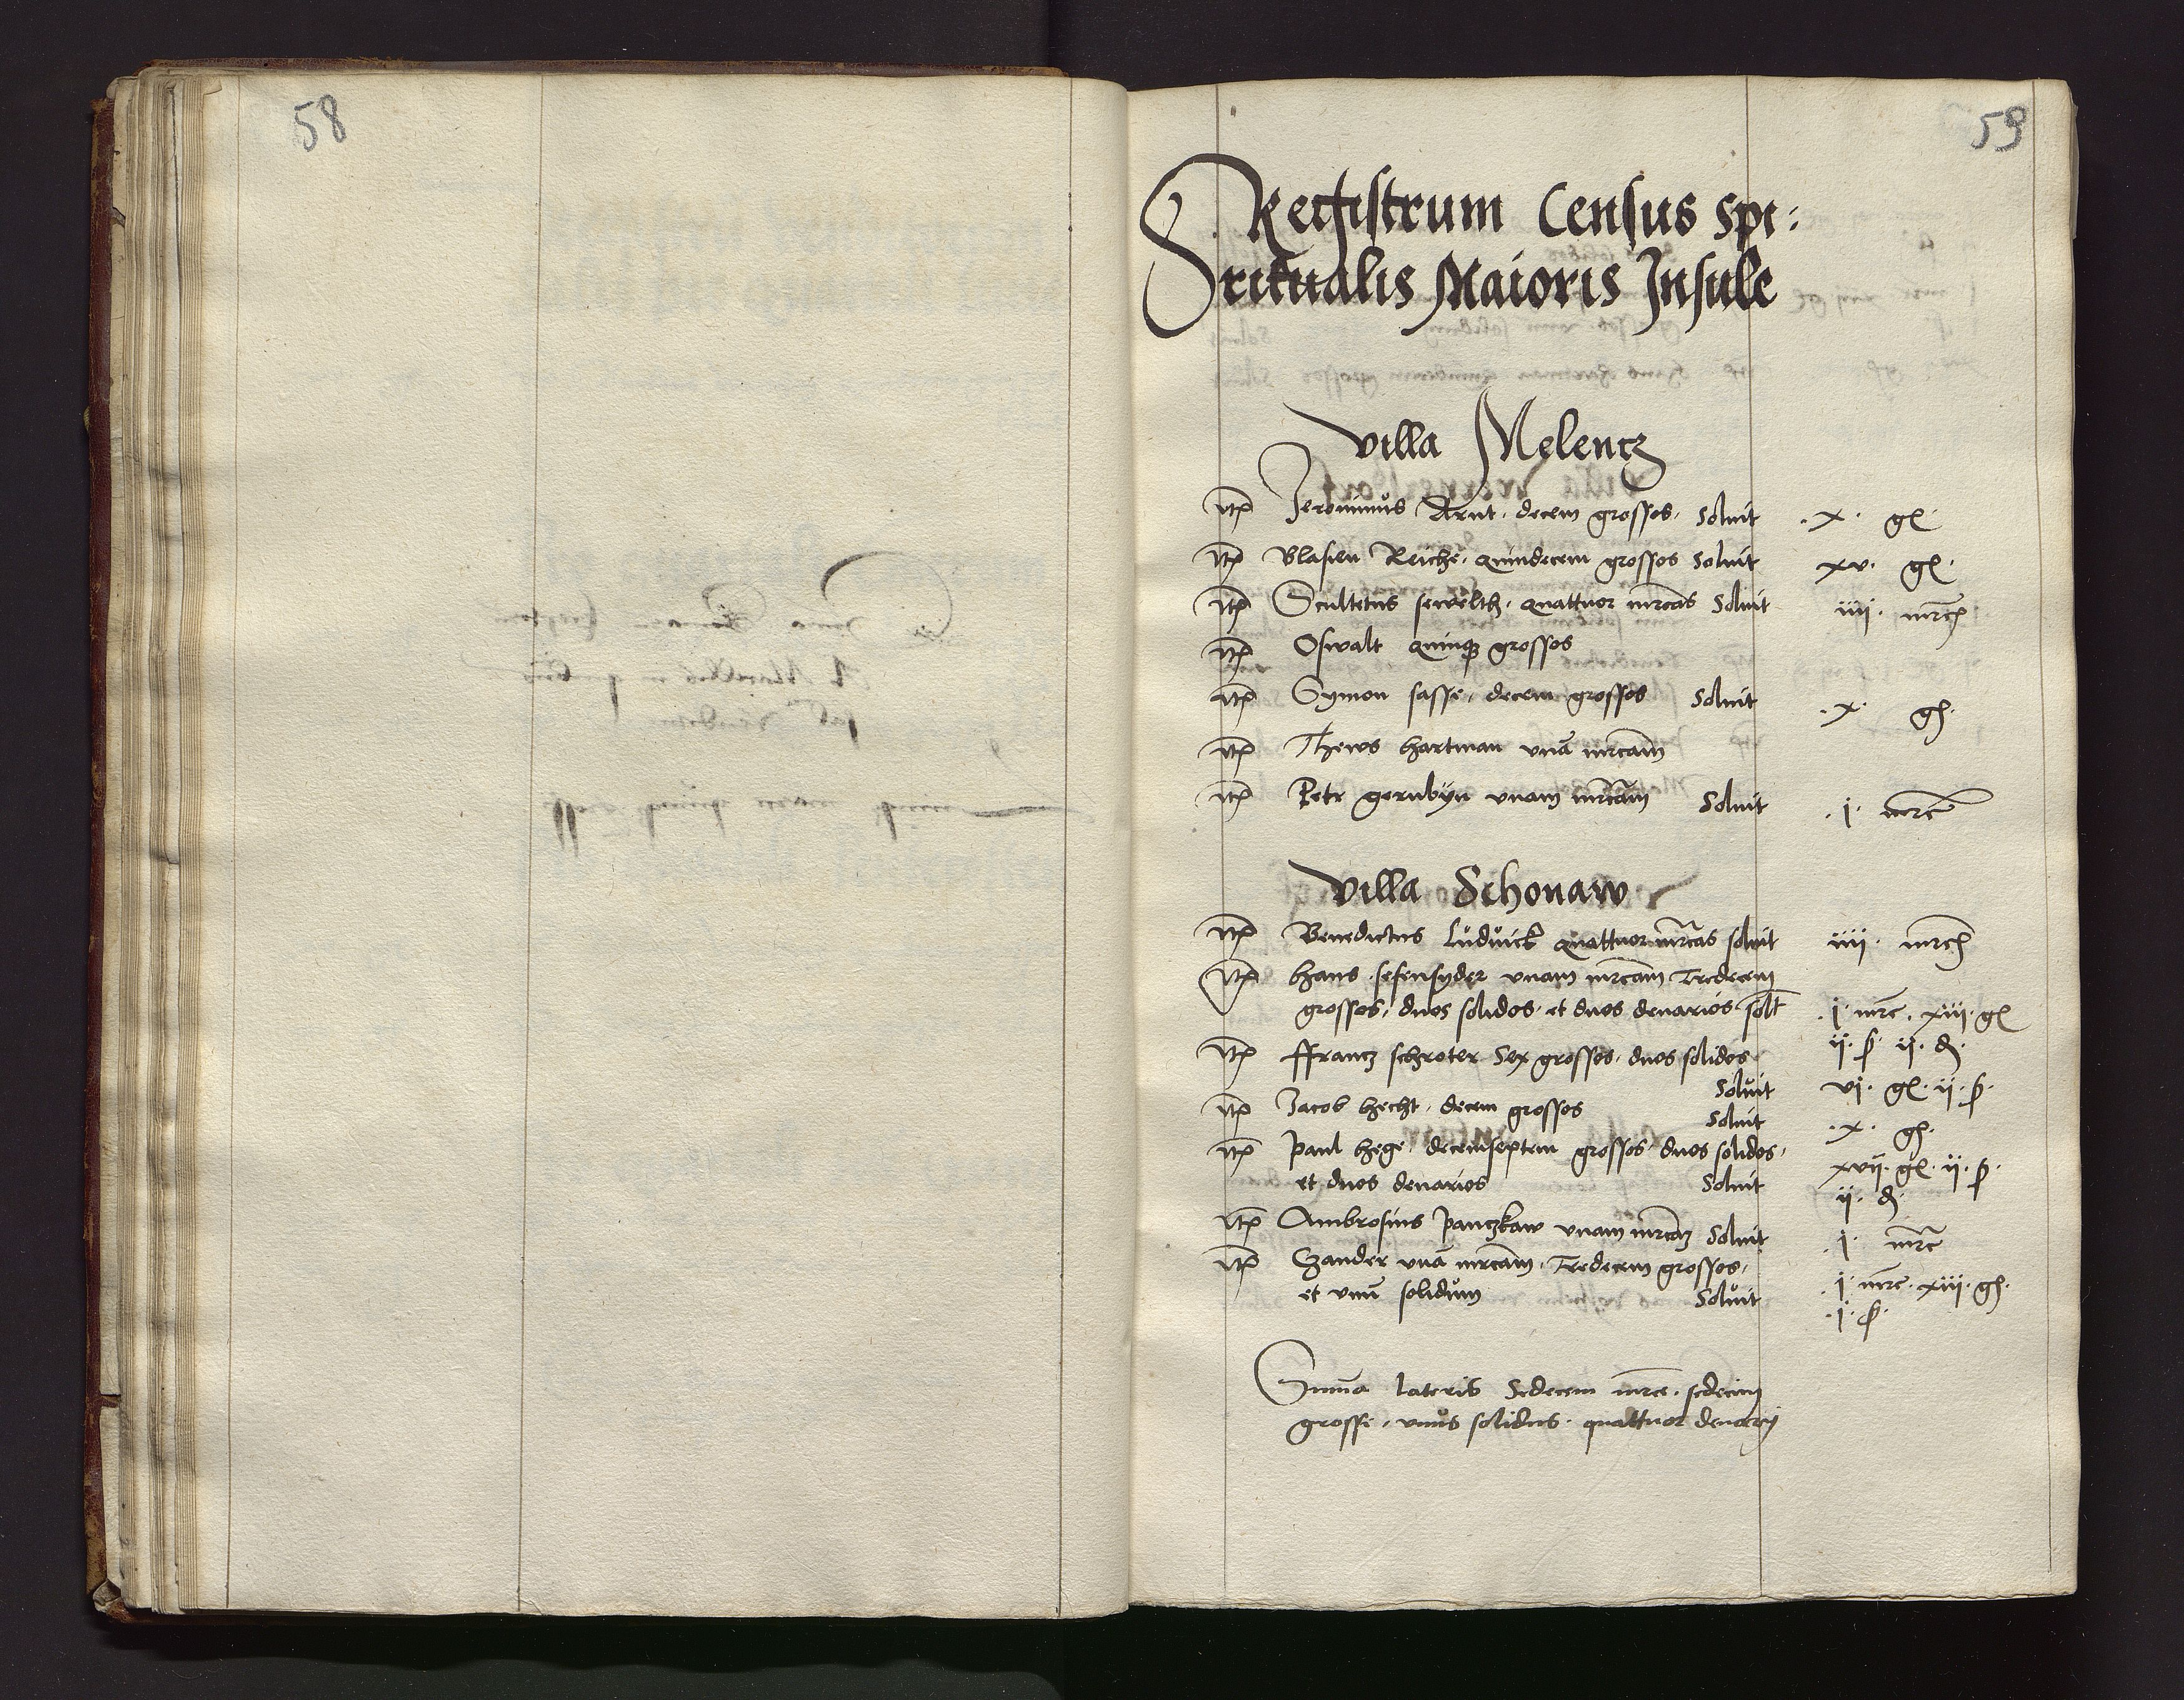 58
59
Registrum Census spi:
ritualis Maioris Insule
villa Melentz
Itē Jeronimus Arnt decem grossos Soluit .x. gſ
Itē Blasien Reiche quindecem grossos Soluit xv. gſ
Itē Scultetus sewelth quattuor mrcas Soluit iiii. mrcſ
Itē Oswalt quinqȝ grossos
Itē Symon sasse decem grossos Soluit .x. gſ
Itē Thews hartman vnā mrcam
Itē Petr gernbÿn vnam mrcam Soluit .j. mrc
villa Schonaw
Itē Benedictus Ludwick quattuor mrcas soluit iiij. mrcſ
Itē hans sefensyder vnam mrcam Tredecem
grossos, duos solidos et duos denarios solt .j. mrc. xiii. gſ
ii. ß ii. ₰
Itē ffrancz schroter Sex grossos duos solidos
Soluit vi. gſ ii. ß
Itē Jacob hecht decem grossos Soluit .x. gſ
Itē paul hege decemseptem grossos duos solidos
et duos denarios Soluit xvii. gſ. ii. ß
ii. ₰
Itē Ambrosius panczkaw vnam mrcaȝ Soluit .j. mrc
Itē Czander vnā mrcam Tredecem grossos,
et vnū solidum Soluit .j. mrc. xiii. gſ
.j. ß
Sum̄a lateris Sedecem mrce sedecim
grossi, vnus solidus quattuor denarij